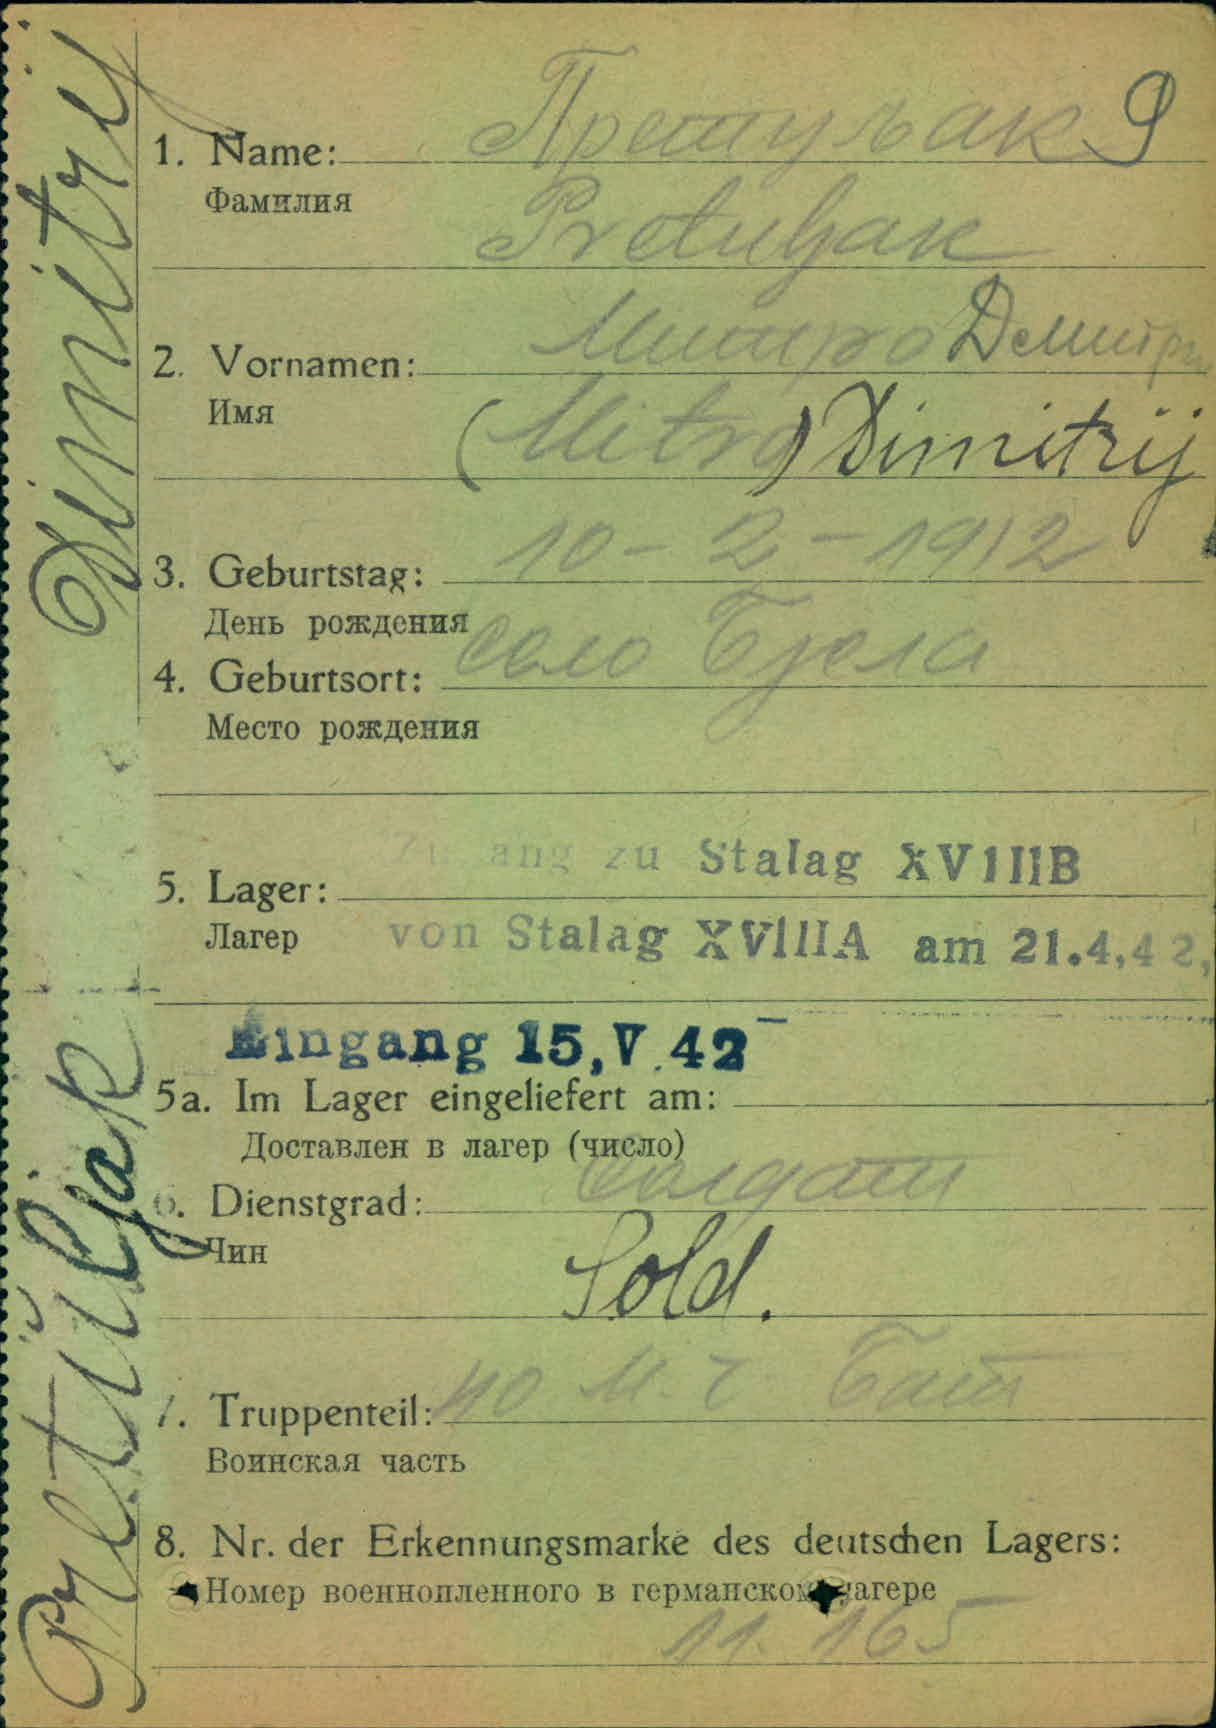 Pretüljak Dimitrij
1. Name: Претуљак 9
Фамилия
Pretuljak
2. Vornamen: Митро Демитри
Имя
(Mitro) Dimitrij
3. Geburtstag: 10 - 2 - 1912
День рождения
4. Geburtsort: Село Бјела
Место рождения
Zugang zu Stalag XVIIIB
5. Lager:
Лагер von Stalag XVIIIA am 21.4.42.
Eingang 15.V.42
5a. Im Lager eingeliefert am:
Доставлен в лагер (число)
6. Dienstgrad: Солдат
Чин
Sold.
7. Truppenteil: 40 М. Г Бат
Воинская часть
8. Nr. der Erkennungsmarke des deutschen Lagers:
Номер военнопленного в германском лагере
11.165